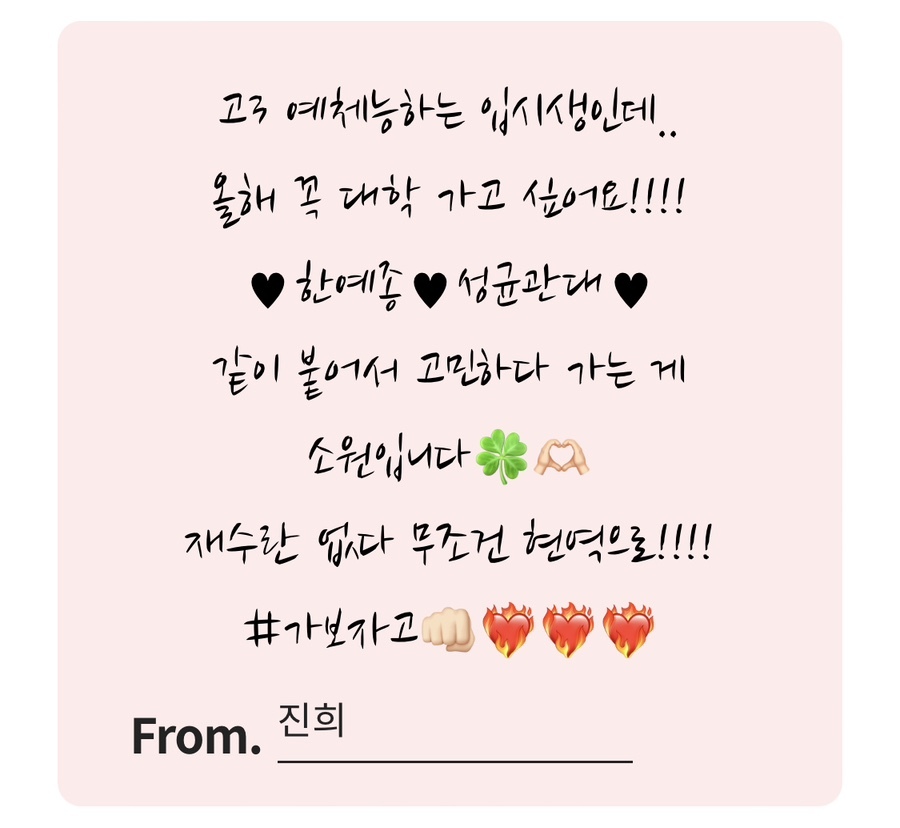 고3 예체능하는 입시생인데..
올해 꼭 대학 가고 싶어요!!!!
♥ 한예종 ♥ 성균관대 ♥
같이 붙어서 고민하다 가는 게
소원입니다🍀🫶🏻
재수란 없다 무조건 현역으로!!!!
#가보자고👊🏻❤️‍🔥❤️‍🔥❤️‍🔥
From. 진희